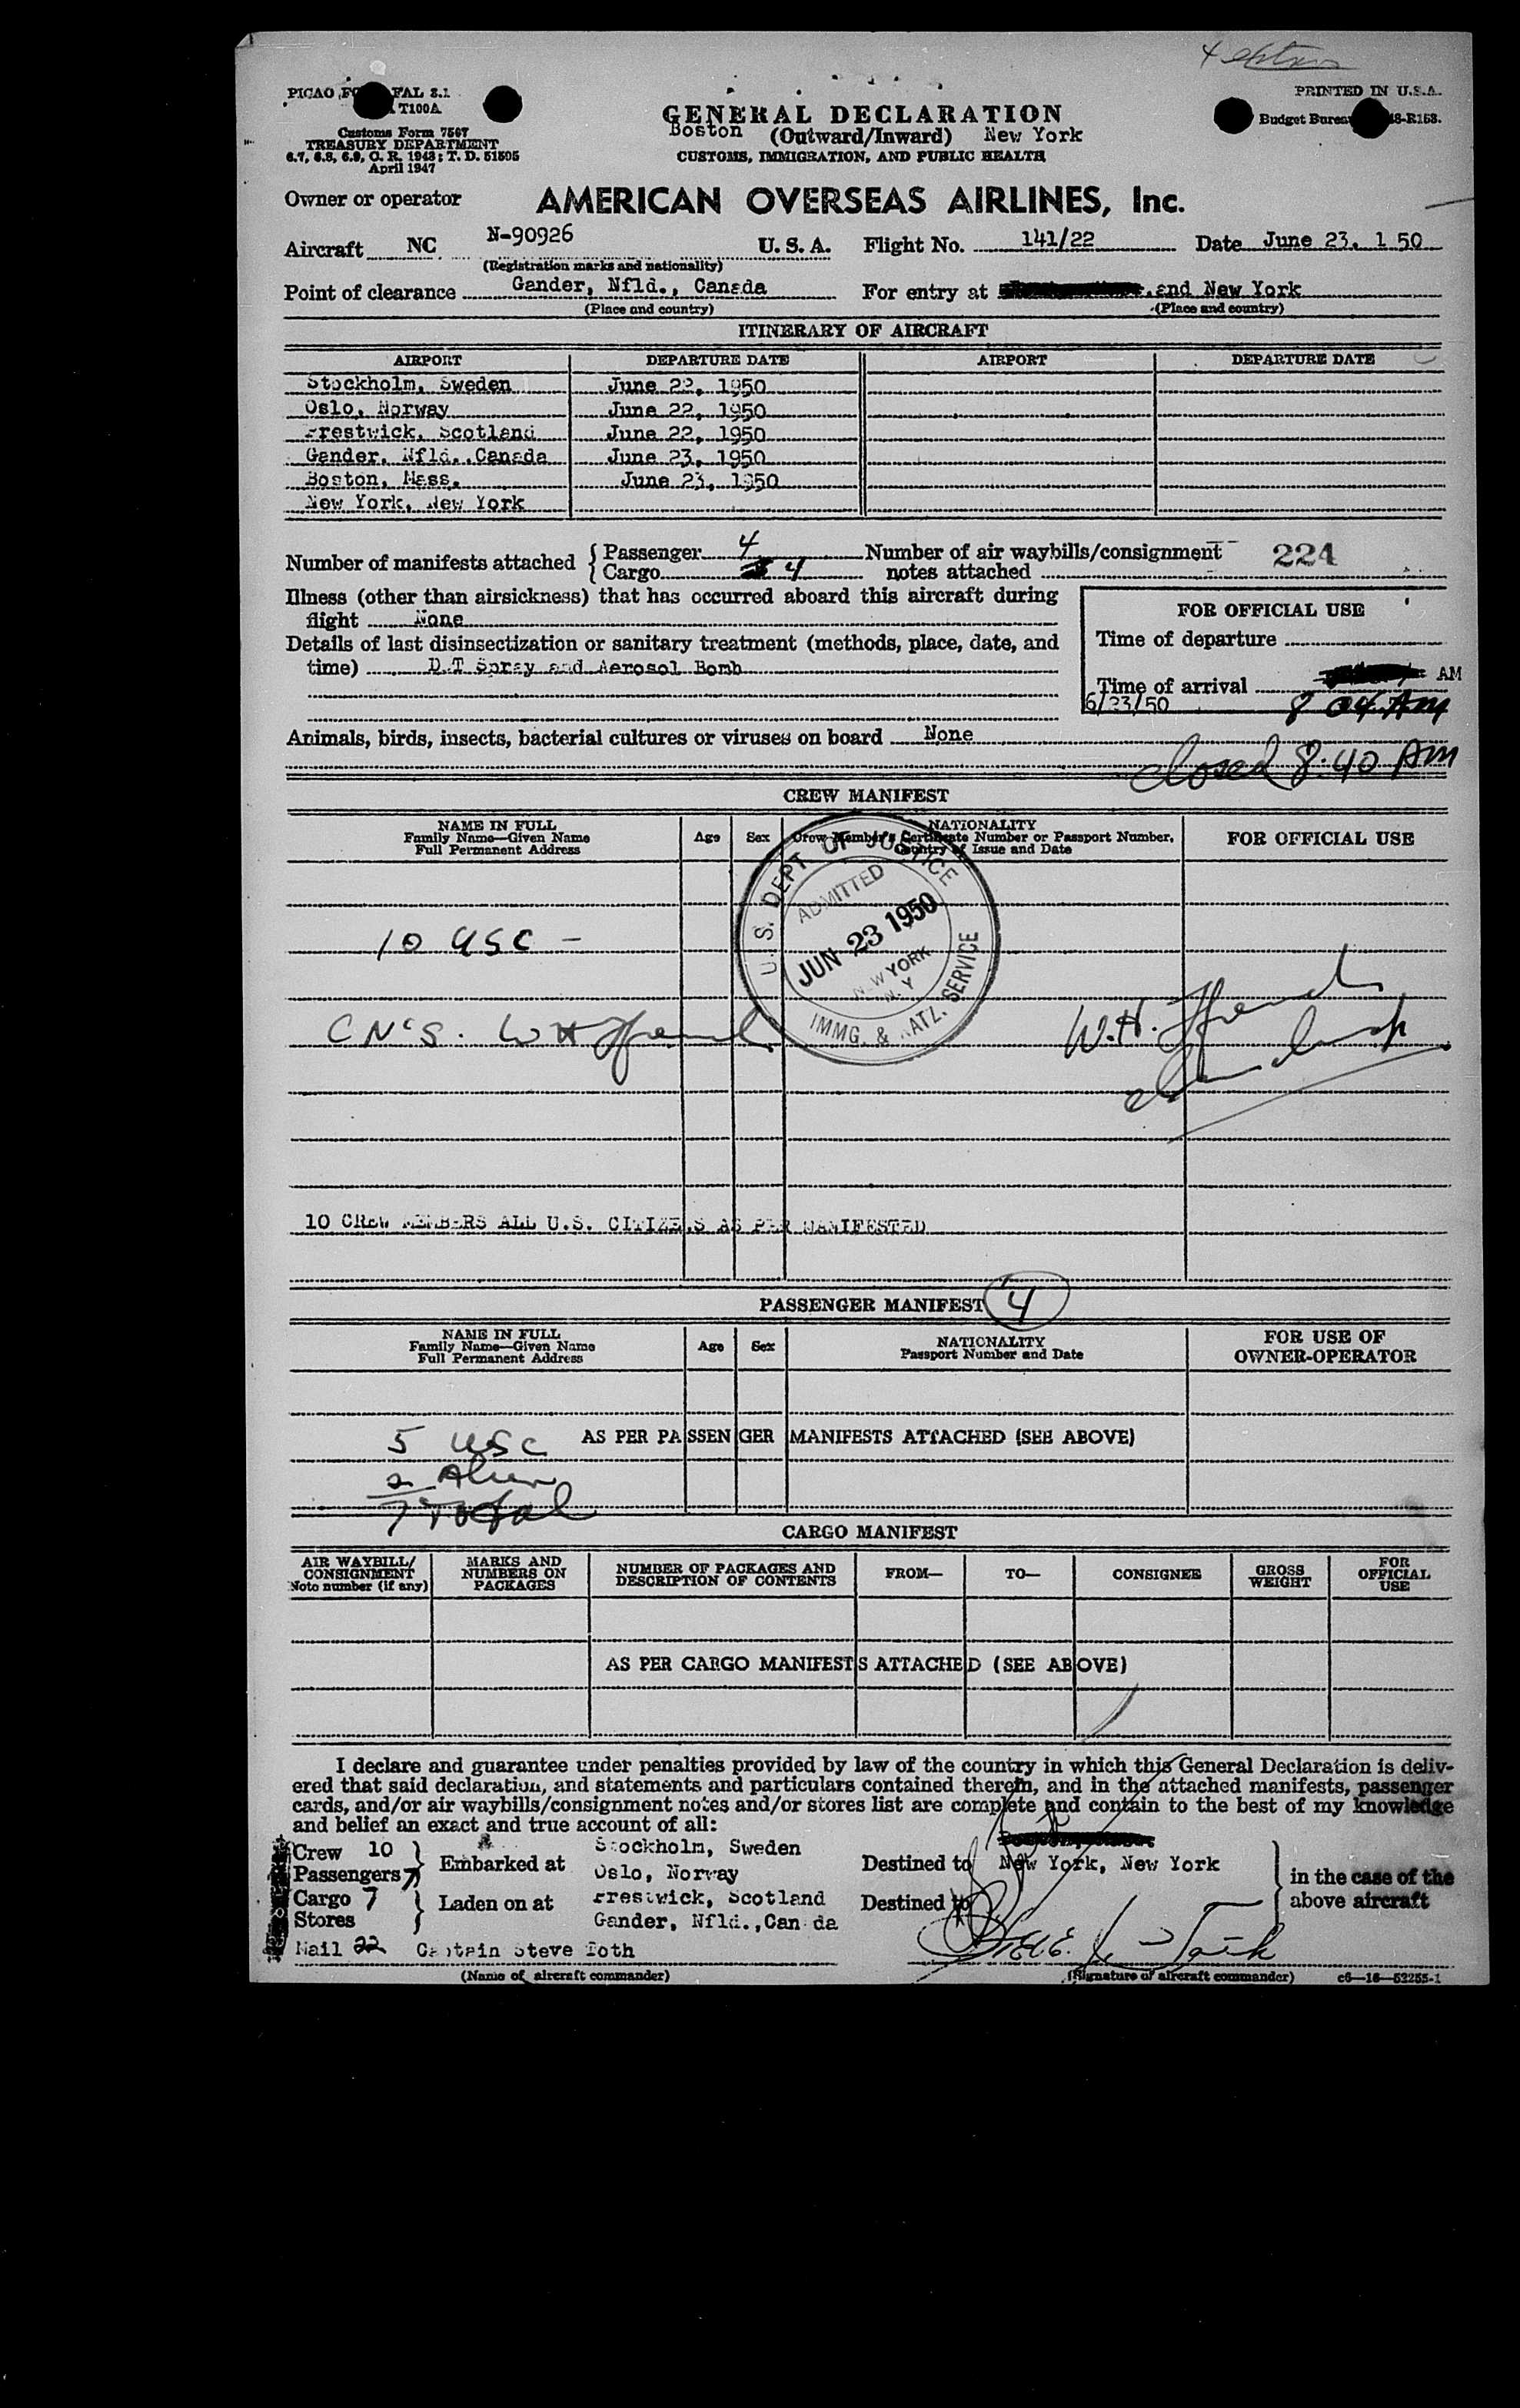 PICAO FAL 8.1
T100A
PRINTED IN U.S.A.
Customs Form 7507
TREASURY DEPARTMENT
6.7, 6.8, 6.9, C. R. 1943; T. D. 51505
April 1947
Budget Bureau 48-R158.
GENERAL DECLARATION
Boston (Outward/Inward) New York
CUSTOMS, IMMIGRATION, AND PUBLIC HEALTH
Owner or operator AMERICAN OVERSEAS AIRLINES, Inc.
Aircraft NC N-90926 U. S. A. Flight No. 141/22 Date June 23, 1 50
(Registration marks and nationality)
Point of clearance Gander, Nfld., Canada For entry at and New York
(Place and country) (Place and country)
ITINERARY OF AIRCRAFT
AIRPORT DEPARTURE DATE AIRPORT DEPARTURE DATE
Stockholm, Sweden June 22, 1950
Oslo, Norway June 22, 1950
Prestwick, Scotland June 22, 1950
Gander, Nfld., Canada June 23, 1950
Boston, Mass. June 23, 1950
New York, New York
Number of manifests attached { Passenger 4 Number of air waybills/consignment 224
Cargo 4 notes attached
Illness (other than airsickness) that has occurred aboard this aircraft during
flight None
Details of last disinsectization or sanitary treatment (methods, place, date, and
time) D.T Spray and Aerosol Bomb
FOR OFFICIAL USE
Time of departure
Time of arrival AM
6/23/50 8 04 AM
Animals, birds, insects, bacterial cultures or viruses on board None
closed 8:40 AM
CREW MANIFEST
NAME IN FULL
Family Name—Given Name
Full Permanent Address
Age Sex
NATIONALITY
Crew Member's Certificate Number or Passport Number,
Country of Issue and Date
FOR OFFICIAL USE
U. S. DEPT. OF JUSTICE
ADMITTED
JUN 23 1950
NEW YORK
N. Y
IMMG. & NATZ. SERVICE
10 USC -
10 CREW MEMBERS ALL U.S. CITIZENS AS PER MANIFESTED
PASSENGER MANIFEST 4
NAME IN FULL
Family Name—Given Name
Full Permanent Address
Age Sex
NATIONALITY
Passport Number and Date
FOR USE OF
OWNER-OPERATOR
5 USC AS PER PASSENGER MANIFESTS ATTACHED (SEE ABOVE)
2 Alien
7 Total
CARGO MANIFEST
AIR WAYBILL/
CONSIGNMENT
Note number (if any)
MARKS AND
NUMBERS ON
PACKAGES
NUMBER OF PACKAGES AND
DESCRIPTION OF CONTENTS
FROM— TO— CONSIGNEE
GROSS
WEIGHT
FOR
OFFICIAL
USE
AS PER CARGO MANIFESTS ATTACHED (SEE ABOVE)
I declare and guarantee under penalties provided by law of the country in which this General Declaration is deliv-
ered that said declaration, and statements and particulars contained therein, and in the attached manifests, passenger
cards, and/or air waybills/consignment notes and/or stores list are complete and contain to the best of my knowledge
and belief an exact and true account of all:
Crew 10
Passengers 7
Embarked at
Stockholm, Sweden
Oslo, Norway
Destined to New York, New York
in the case of the
above aircraft
Cargo 7
Stores
Laden on at
Prestwick, Scotland
Gander, Nfld., Can da
Destined to
Mail 22 Captain Steve Toth
(Name of aircraft commander) (Signature of aircraft commander) c6—16—52255-1